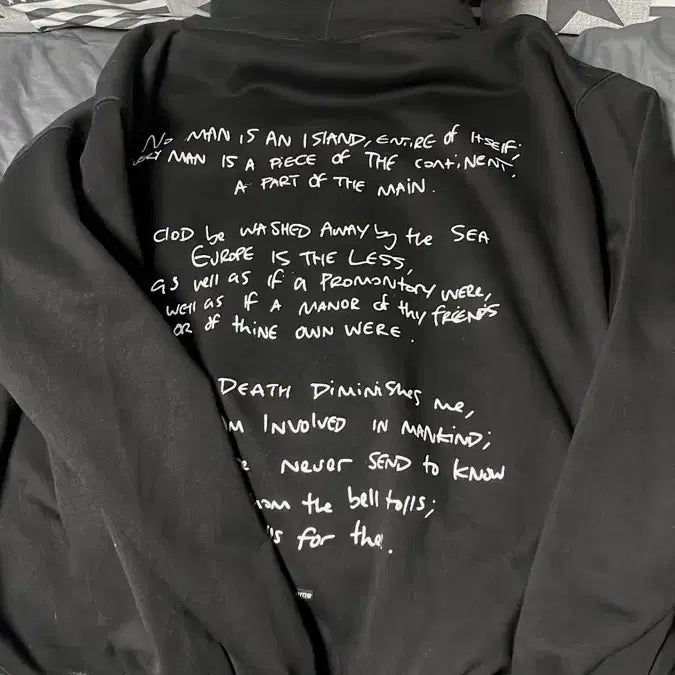 No MAN IS AN ISLAND, ENTIRE of ITSELF;
MAN IS A PIECE OF THE CONTINENT,
A PART OF THE MAIN.
CLOD be WASHED AWAY by the SEA
EUROPE IS THE LESS,
as well as if a PROMONTORY WERE,
well as IF A MANOR of thy FRIENDS
OR OF thiNE OWN WERE.
DEATH DiminiShes me,
INVOLVED IN MANKIND;
never SEND to KNOW
the bell tolls;
for the.